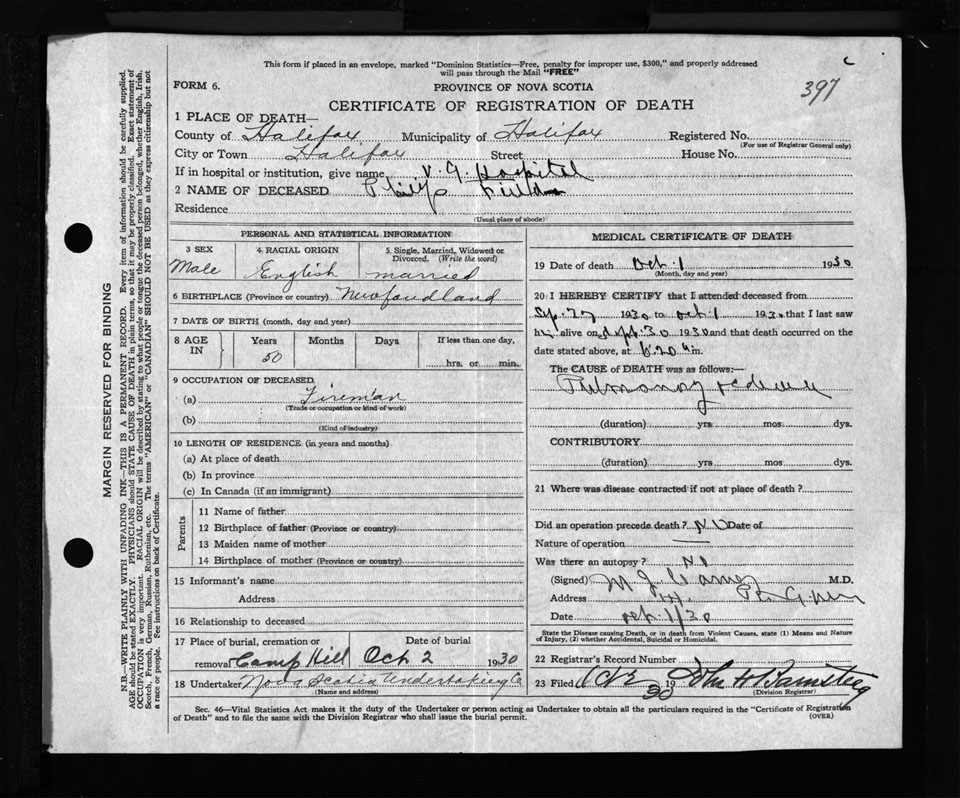 This form if placed in an envelope, marked "Dominion Statistics—Free, penalty for improper use, $300," and properly addressed
will pass through the Mail "FREE"
397
FORM 6.
PROVINCE OF NOVA SCOTIA
CERTIFICATE OF REGISTRATION OF DEATH
1 PLACE OF DEATH—
County of Halifax Municipality of Halifax Registered No.
(For use of Registrar General only)
City or Town Halifax Street House No.
If in hospital or institution, give name V. G. Hospital
2 NAME OF DECEASED Fields
Residence
(Usual place of abode)
PERSONAL AND STATISTICAL INFORMATION
3 SEX 4 RACIAL ORIGIN 5 Single, Married, Widowed or Divorced. (Write the word)
Male English married
6 BIRTHPLACE (Province or country) Newfoundland
7 DATE OF BIRTH (month, day and year)
8 AGE IN Years Months Days If less than one day,
50 hrs. or min.
9 OCCUPATION OF DECEASED
(a) Fireman
(Trade or occupation or kind of work)
(b)
(Kind of industry)
10 LENGTH OF RESIDENCE (in years and months)
(a) At place of death
(b) In province
(c) In Canada (if an immigrant)
Parents
11 Name of father
12 Birthplace of father (Province or country)
13 Maiden name of mother
14 Birthplace of mother (Province or country)
15 Informant's name
Address
16 Relationship to deceased
17 Place of burial, cremation or Date of burial
removal Camp Hill Oct 2 1930
18 Undertaker Nova Scotia Undertaking Co
(Name and address)
MEDICAL CERTIFICATE OF DEATH
19 Date of death Oct. 1 1930
(Month, day and year)
20 I HEREBY CERTIFY that I attended deceased from
Sep. 27 1930 to Oct. 1 1930 that I last saw
him alive on Sept. 30 1930 and that death occurred on
date stated above, at m.
The CAUSE of DEATH was as follows:—
Pulmonary oedema
(duration) yrs mos dys.
CONTRIBUTORY
(duration) yrs mos dys.
21 Where was disease contracted if not at place of death?
Did an operation precede death? No Date of
Nature of operation —
Was there an autopsy? No
(Signed) M. J. Carney M.D.
Address
Date Oct. 1/30
State the Disease causing Death, or in death from Violent Causes, state (1) Means and Nature
of Injury, (2) whether Accidental, Suicidal or Homicidal.
22 Registrar's Record Number
23 Filed Oct 2 1930 John H Barnsteag
(Division Registrar)
Sec. 46—Vital Statistics Act makes it the duty of the Undertaker or person acting as Undertaker to obtain all the particulars required in the "Certificate of Registration
of Death" and to file the same with the Division Registrar who shall issue the burial permit.
(OVER)
MARGIN RESERVED FOR BINDING
N.B.—WRITE PLAINLY WITH UNFADING INK—THIS IS A PERMANENT RECORD. Every item of information should be carefully supplied.
AGE should be stated EXACTLY. PHYSICIANS should STATE CAUSE OF DEATH in plain terms, so that it may be properly classified. Exact statement of
OCCUPATION is very important. RACIAL ORIGIN will be described by stating to what people or tongue the deceased person belonged, whether English, Irish,
Scotch, French, German, Russian, Ruthenian, etc. The terms "AMERICAN" or "CANADIAN" SHOULD NOT BE USED as they express citizenship but not
a race or people. See instructions on back of Certificate.